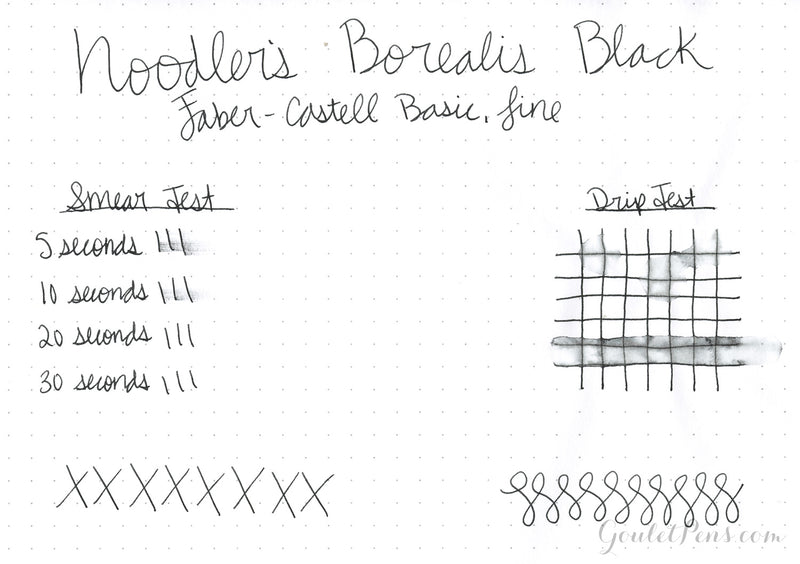 Noodler's Borealis Black
Faber-Castell Basic, fine
Smear Test
Drip Test
5 seconds
10 seconds
20 seconds
30 seconds
XXXXXXXX
GouletPens.com